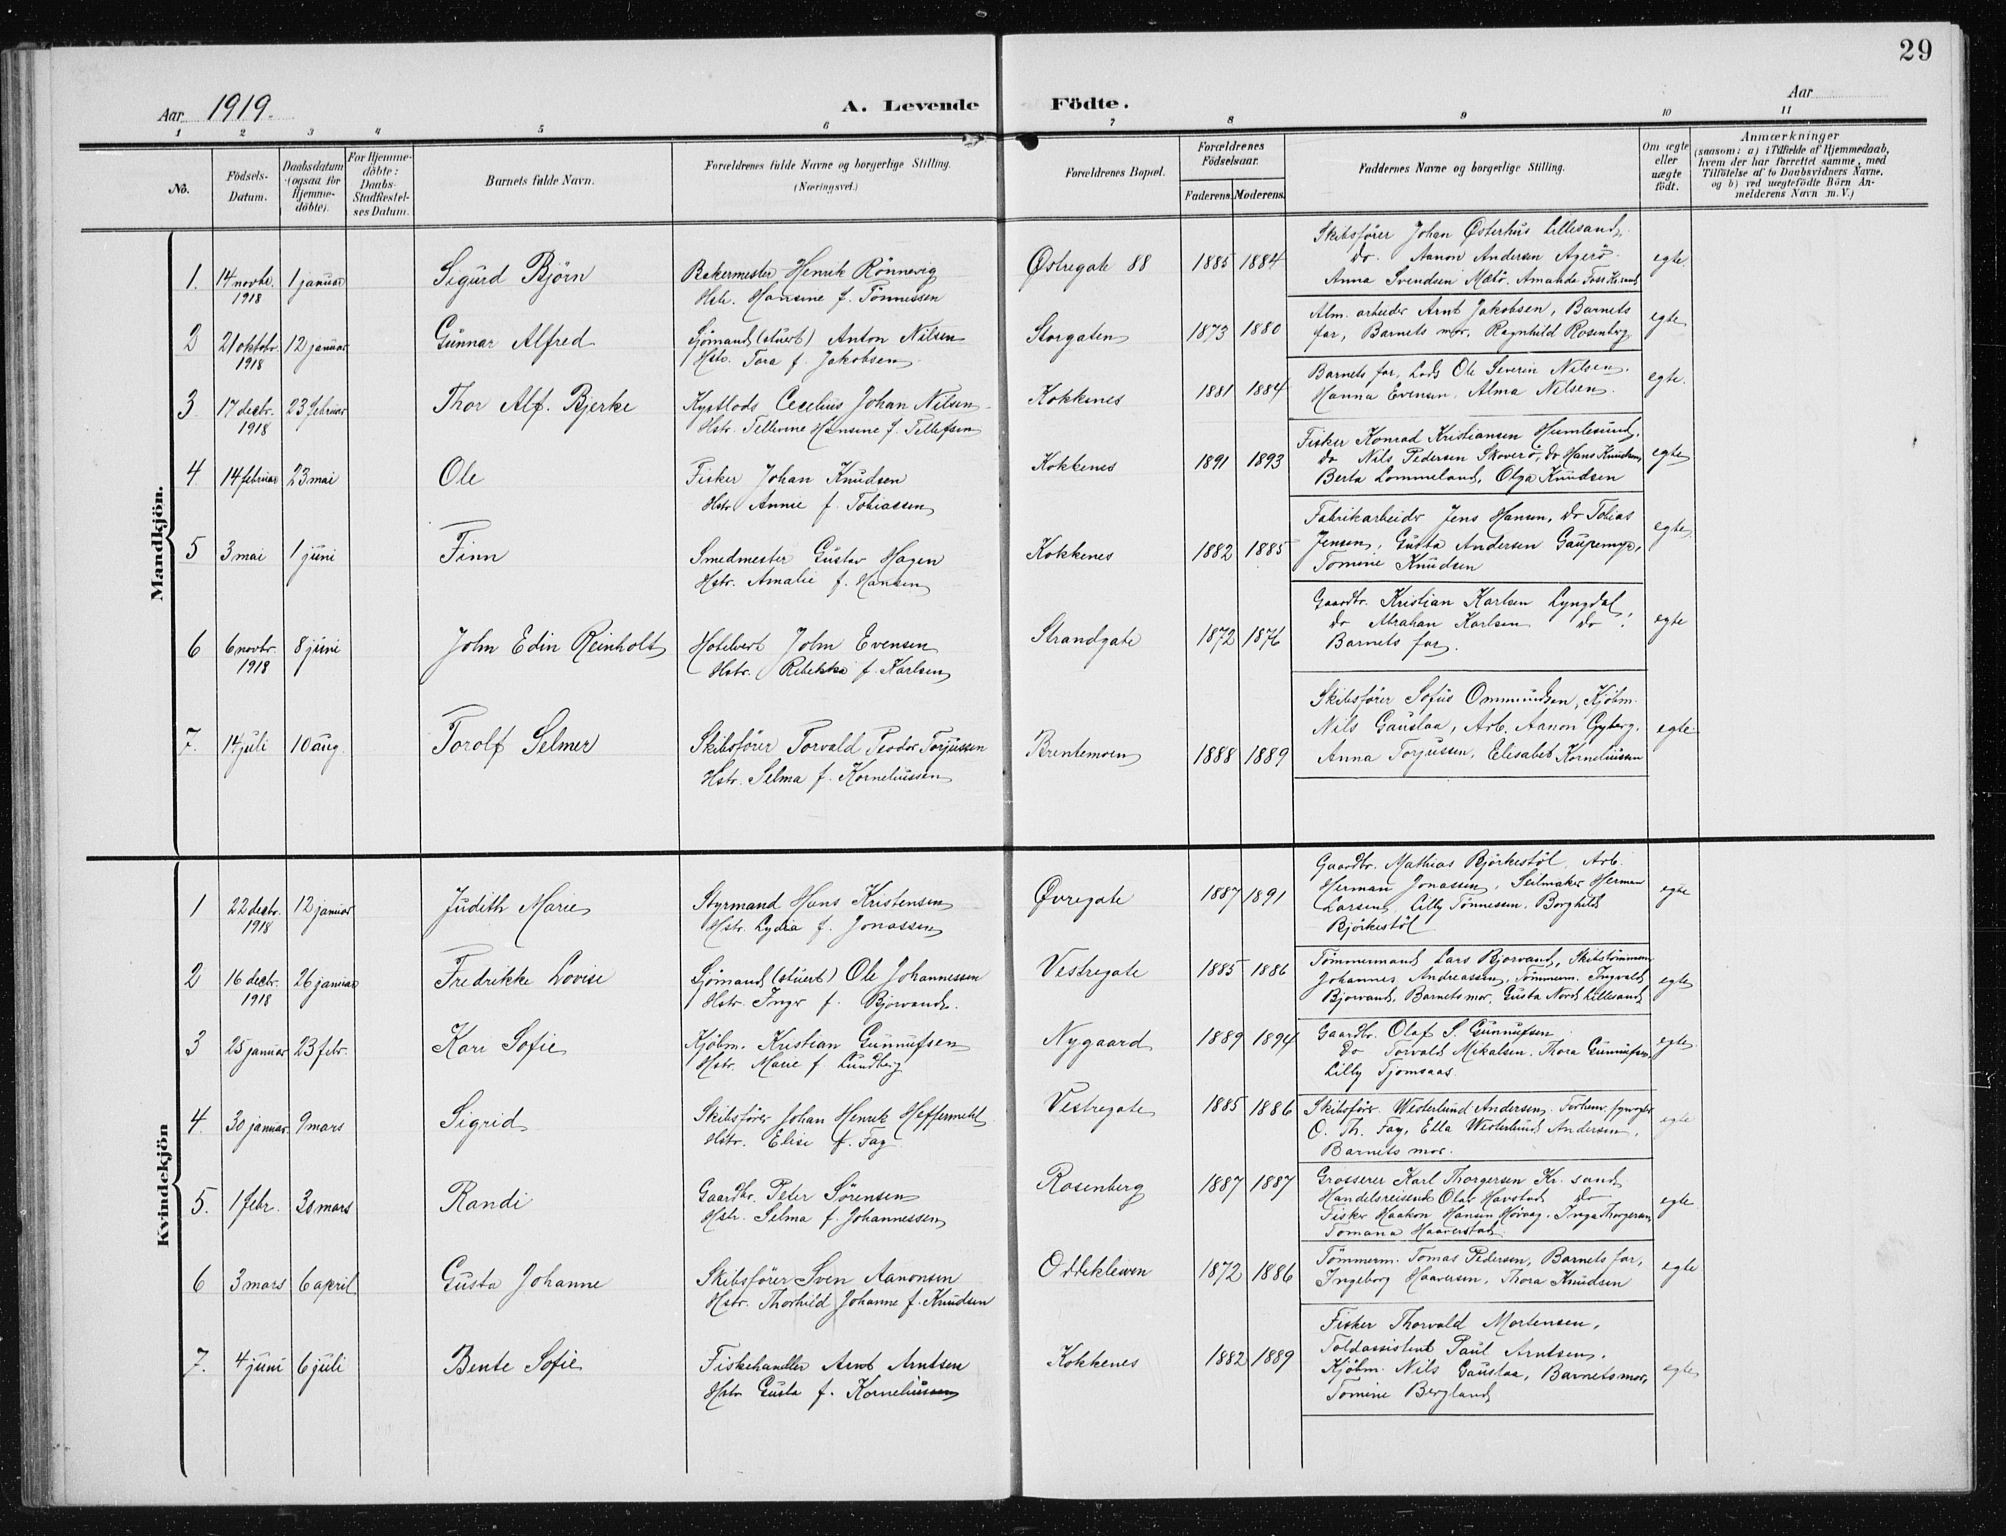 29
Aar 1919.
A. Levende Födte.
Aar
1 2 3 4 5 6 7 8 9 10 11
No.
Födsels-Datum.
Daabsdatum (ogsaa for Hjemme-döbte).
For Hjemme-döbte: Daabs-Stadfæstel-ses Datum.
Barnets fulde Navn.
Forældrenes fulde Navne og borgerlige Stilling.
(Næringsvei.)
Forældrenes Bopæl.
Forældrenes Födselsaar.
Faderens. Moderens.
Faddernes Navne og borgerlige Stilling.
Om ægte eller uægte födt.
Anmærkninger
(saasom: a) i Tilfælde af Hjemmedaab,
hvem der har forrettet samme, med
Tilföielse af to Daabsvidners Navne,
og b) ved uægtefödte Börn An-
melderens Navn m. V.)
Mandkjön.
1. 14 novbr. 1918 1 januar Sigurd Björn
Bakermester Henrik Rönnevig
Hstr. Hansine f. Tönnessen
Østregate 88 1885 1884
Skibsförer Johan Østerhus Lillesand,
do. Aanon Andersen Agerö
Anna Svendsen Mætö. Amanda Foss Kr.sand
egte.
2 21 oktobr. 1918 12 januar Gunnar Alfred
Sjömand (stuert) Anton Nilsen
Hstr. Tora f. Jakobsen
Storgaten 1873 1880
Alm. arbeider Arnt Jakobsen, Barnets
far, Barnets mor. Ragnhild Rosenberg
egte
3. 17 decbr. 1918 23 februar Thor Alf. Bjerke
Kystlods Cecelius Johan Nilsen
Hstr. Tellevine Hansine f. Tellefsen
Kokkenes 1881 1884
Barnets far, Lods Ole Severin Nilsen.
Hanna Evensen. Alma Nilsen.
egte.
4. 14 februar 23 mai Ole
Fisker Johan Knudsen
Hstr. Annie f. Tobiassen
Kokkenes 1891 1893
Fisker Konrad Kristiansen Humlesund,
do Nils Pedersen Skoverö, do Hans Knudsen
Berta Lommeland, Olga Knudsen
egte
5 3 mai 1 juni Finn
Smedmester Gustav Hagen
Hstr. Amalie f. Hansen
Kokkenes 1882 1885
Fabrikarbeider Jens Hansen, do Tobias
Jensen, Gusta Andersen Gaupemyr,
Tomine Knudsen
egte
6 6 novbr. 1918 8 juni John Edin Reinholt
Hotelvert John Evensen
Hstr. Rebekka f. Karlsen
Strandgate 1872 1876
Gaardbr. Kristian Karlsen Lyngdal
do Abraham Karlsen do.
Barnets far.
egte
7. 14 juli 10 aug. Torolf Selmer
Skibsförer Torvald Peoder Torjussen
Hstr. Selma f. Korneliussen
Brentemoen 1888 1889
Skibsförer Sofus Ommundsen, Kjöbm.
Nils Gauslaa, Arb. Aanon Gyberg.
Anna Torjussen, Elisabet Korneliussen
egte
Kvindekjön
1 22 decbr. 1918 12 januar Judith Marie
Styrmand Hans Kristensen
Hstr. Lydia f. Jonassen
Øvregate 1887 1891
Gaardbr. Mathias Björkestöl, Arb.
Herman Jonassen, Seilmaker Herman
Larsen, Lilly Tönnessen. Borghild
Björkestöl
egte
2 16 decbr. 1918 26 januar Fredrikke Lovise
Sjömand (stuert) Ole Johannessen
Hstr. Inger f. Bjorvand.
Vestregate 1885 1886
Tömmermand Lars Bjorvand, Skibstömmerm.
Johannes Andreassen, Tömmerm. Ingvald
Bjorvand, Barnets mor. Gusta Nord Lillesand
egte
3 25 januar 23 febr. Kari Sofie
Kjöbm. Kristian Gunnufsen
Hstr. Marie f. Lundberg
Nygaard 1889 1894
Gaardbr. Olaf S. Gunnufsen
do Torvald Mikalsen. Thora Gunnufsen,
Lilly Tjomsaas.
egte
4. 30 januar. 9 mars Sigrid
Skibsförer Johan Henrik Heffermehl.
Hstr. Elise f. Fay
Vestregate 1885 1886
Skibsför. Westerlund Andersen. Forhenv. fyrvogter
O. Th. Fay, Ella Westerlund Andersen,
Barnets mor.
egte
5. 1 febr. 30 mars Randi
Gaardbr. Peter Sörensen
Hstr. Selma f. Johannessen
Rosenberg 1887 1887
Grosserer Karl Thorgersen Kr. sand
Handelsreisende Olav Havstad do
Fisker Haakon Hansen Hövaag. Inga Thorgersen
Tomana Haaverstad
egte
6 3 mars 6 april Gusta Johanne
Skibsförer Sven Aanonsen
Hstr. Thorhild Johanne f. Knudsen
Oddekleven 1872 1886
Tömmerm. Tomas Pedersen, Barnets far,
Ingeborg Haaversen, Thora Knudsen
egte
7. 4 juni 6 juli Bente Sofie
Fiskehandler Arnt Arntsen
Hstr Gusta f. Korneliussen
Kokkenes 1882 1889
Fisker Thorvald Mortensen,
Toldassistent Paul Arntsen.
Kjöbm. Nils Gauslaa, Barnets mor,
Tomine Bergland
egte